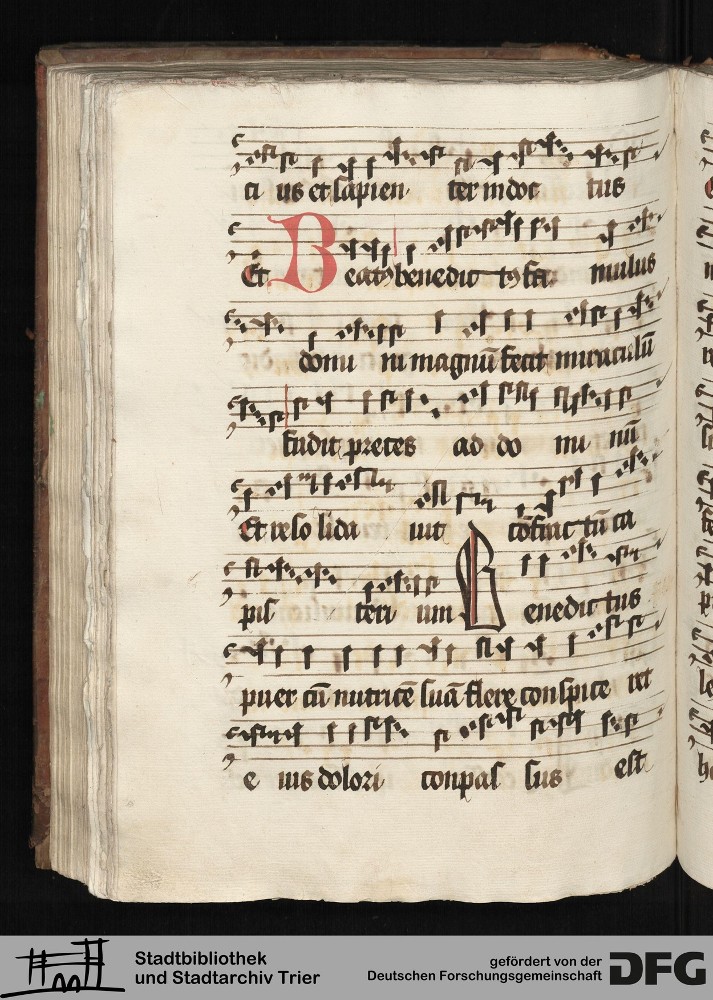 ti us et sapien ter indoc tus
Et Beatꝰ benedic tꝰ fa mulus
domi ni magnū fecit miraculū
fudit preces ad do mi nū
Et reso lida uit cōfrac tū ca
pis teri um Benedictus
puer cū nutricē suā flere conspice ret
e ius dolori conpas sus est
Stadtbibliothek
und Stadtarchiv Trier
gefördert von der
Deutschen Forschungsgemeinschaft
DFG